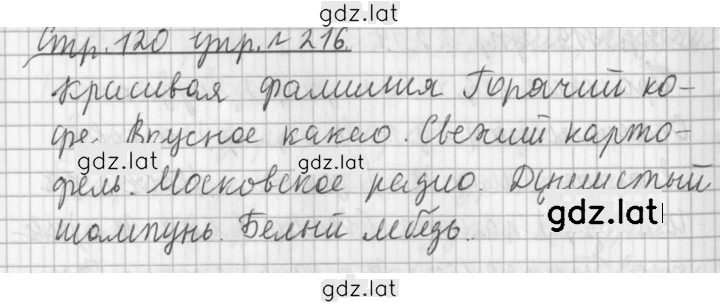 gdz.lat
Стр. 120 упр. № 216.
Красивая фамилия Горячий ко-
фе. Вкусное какао. Свежий карто-
gdz.lat gdz.lat
фель. Московское радио. Душистый
gdz.lat
шампунь. Белый лебедь.
gdz.lat